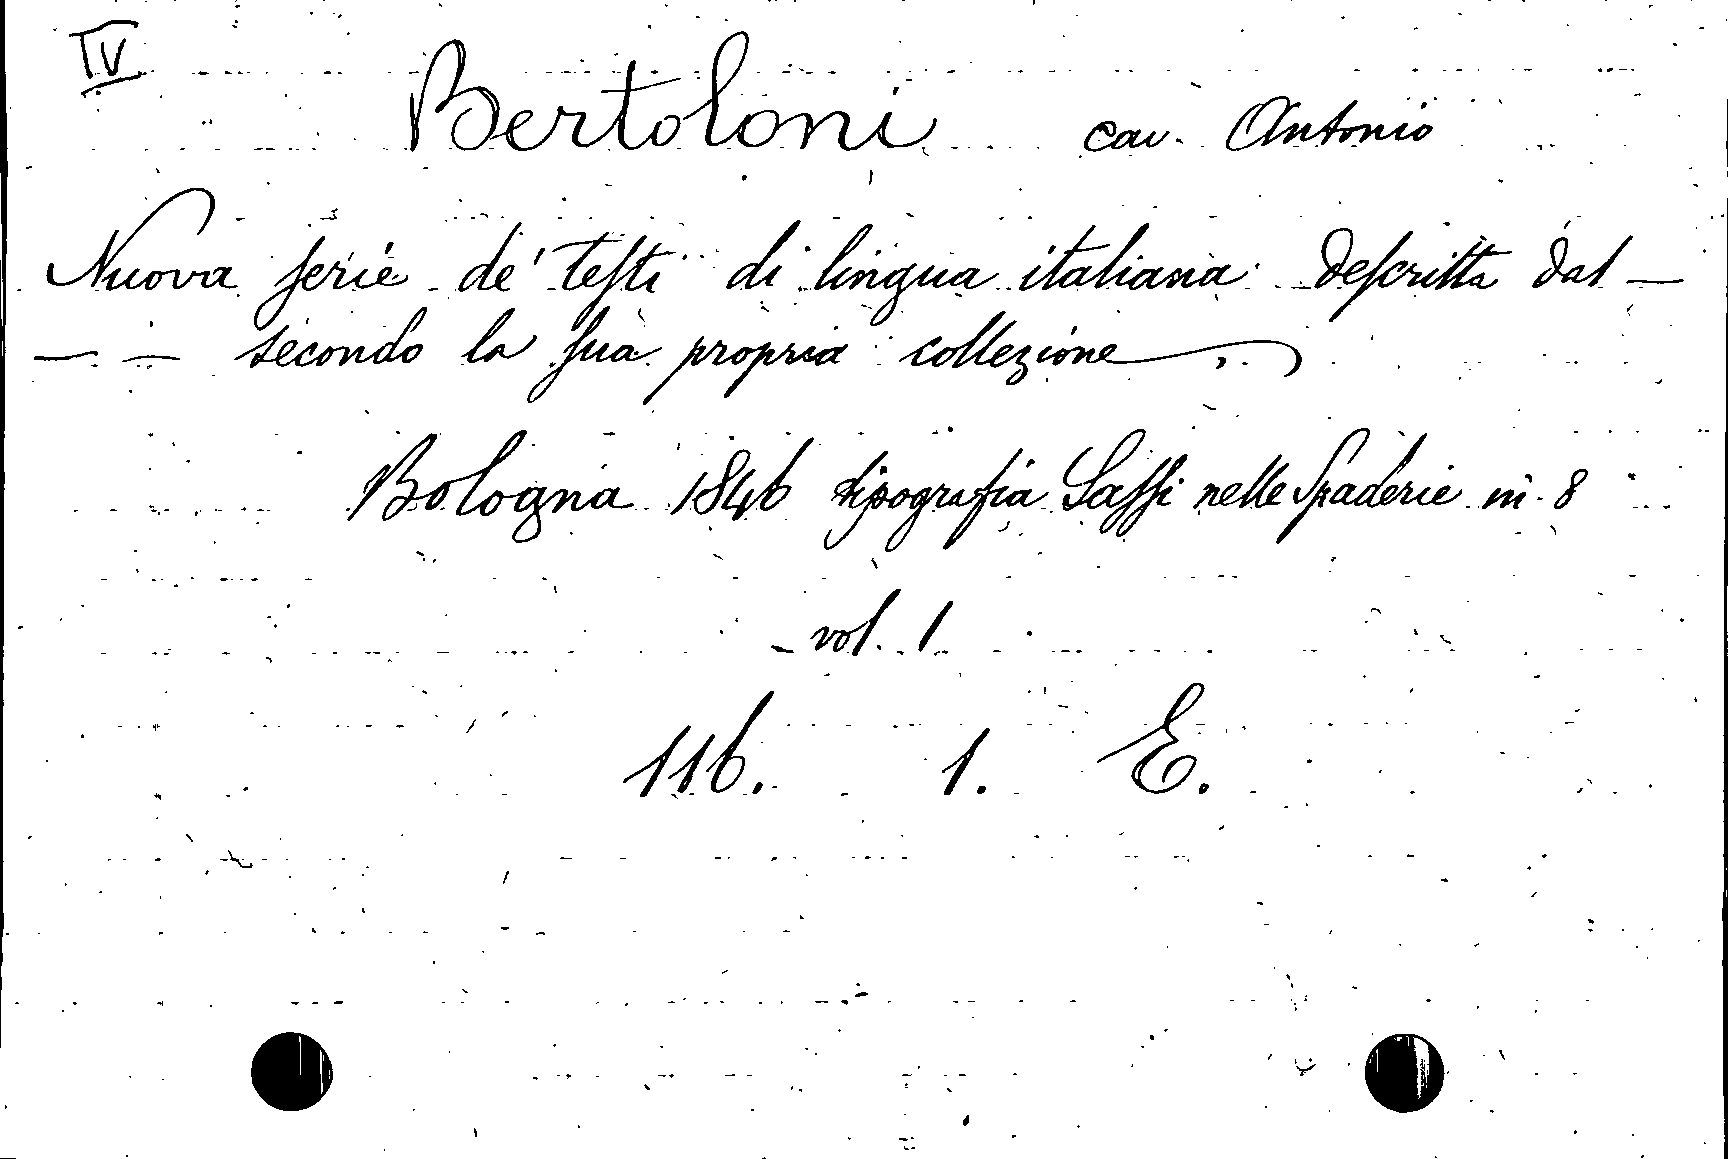 IV
Bertoloni cav. Antonio
Nuova serie de' testi di lingua italiana descritta dal —
— — secondo la sua propria collezione
Bologna 1846 tipografia Sassi nelle Spaderie in 8
vol. 1
116. 1. E.